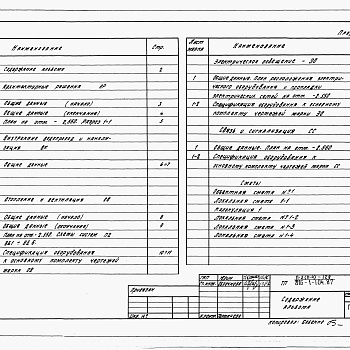 Наименование
Стр.
Содержание альбома
2
Архитектурные решения АР
Общие данные (начало)
3
Общие данные (окончание)
4
План на отм. -2,550. Разрез 1-1
5
Внутренние водопровод и канали-
зация ВК
Общие данные
6-7
Отопление и вентиляция ОВ
Общие данные (начало)
8
Общие данные (окончание)
9
Спецификация оборудования
10-11
к основному комплекту чертежей
марки ОВ
Лист
марки
Наименование
Электрическое освещение - ЭО
1
Общие данные. План расположения электри-
ческого оборудования и прокладки
электрических сетей на отм -2.550
1-2
Спецификация оборудования к основному
комплекту чертежей марки ЭО
Связь и сигнализация СС
1
Общие данные. План на отм -2.550
1-2
Спецификация оборудования к
основному комплекту чертежей марки СС
Сметы
Объектная смета №1
Локальная смета 1-1
Калькуляция 1
Локальная смета №1-2
Локальная смета 1-3
Локальная смета 1-4
Привязан
Инв №
ГИП
ТП
Содержание
альбома
Копировал: